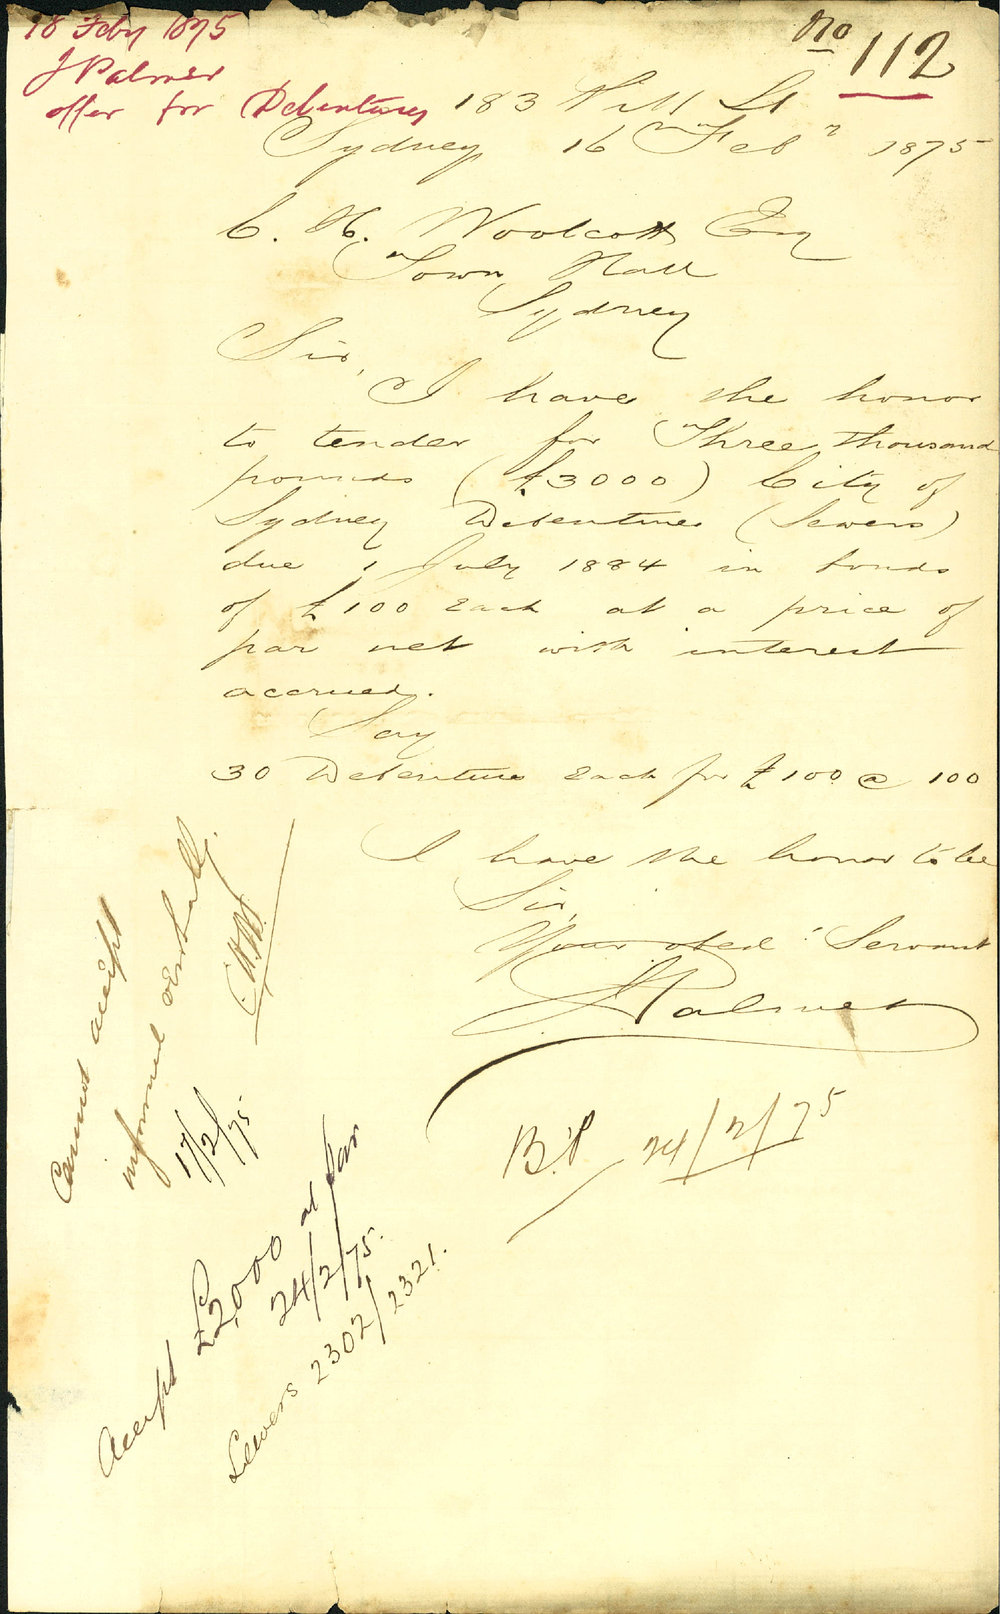 18 Feby 1875
J Palmer
offer for Debentures
No 112
183 Pitt St
Sydney 16 Feby 1875
C. H. Woolcott Esq
Town Hall
Sydney
Sir,
I have the honor
to tender for Three thousand
pounds (£3000) City of
Sydney Debentures (Sewers)
due 1 July 1884 in bonds
of £100 Each at a price of
par net with interest
accrued.
Say
30 Debentures Each for £100 @ 100
I have the honor to be
Sir,
Your obed! Servant
J Palmer
Cannot accept
informed verbally.
C.H.W.
17/2/75
B.P. 24/2/75
Accept £2,000 at par
24/2/75.
Sewers 2302/2321.